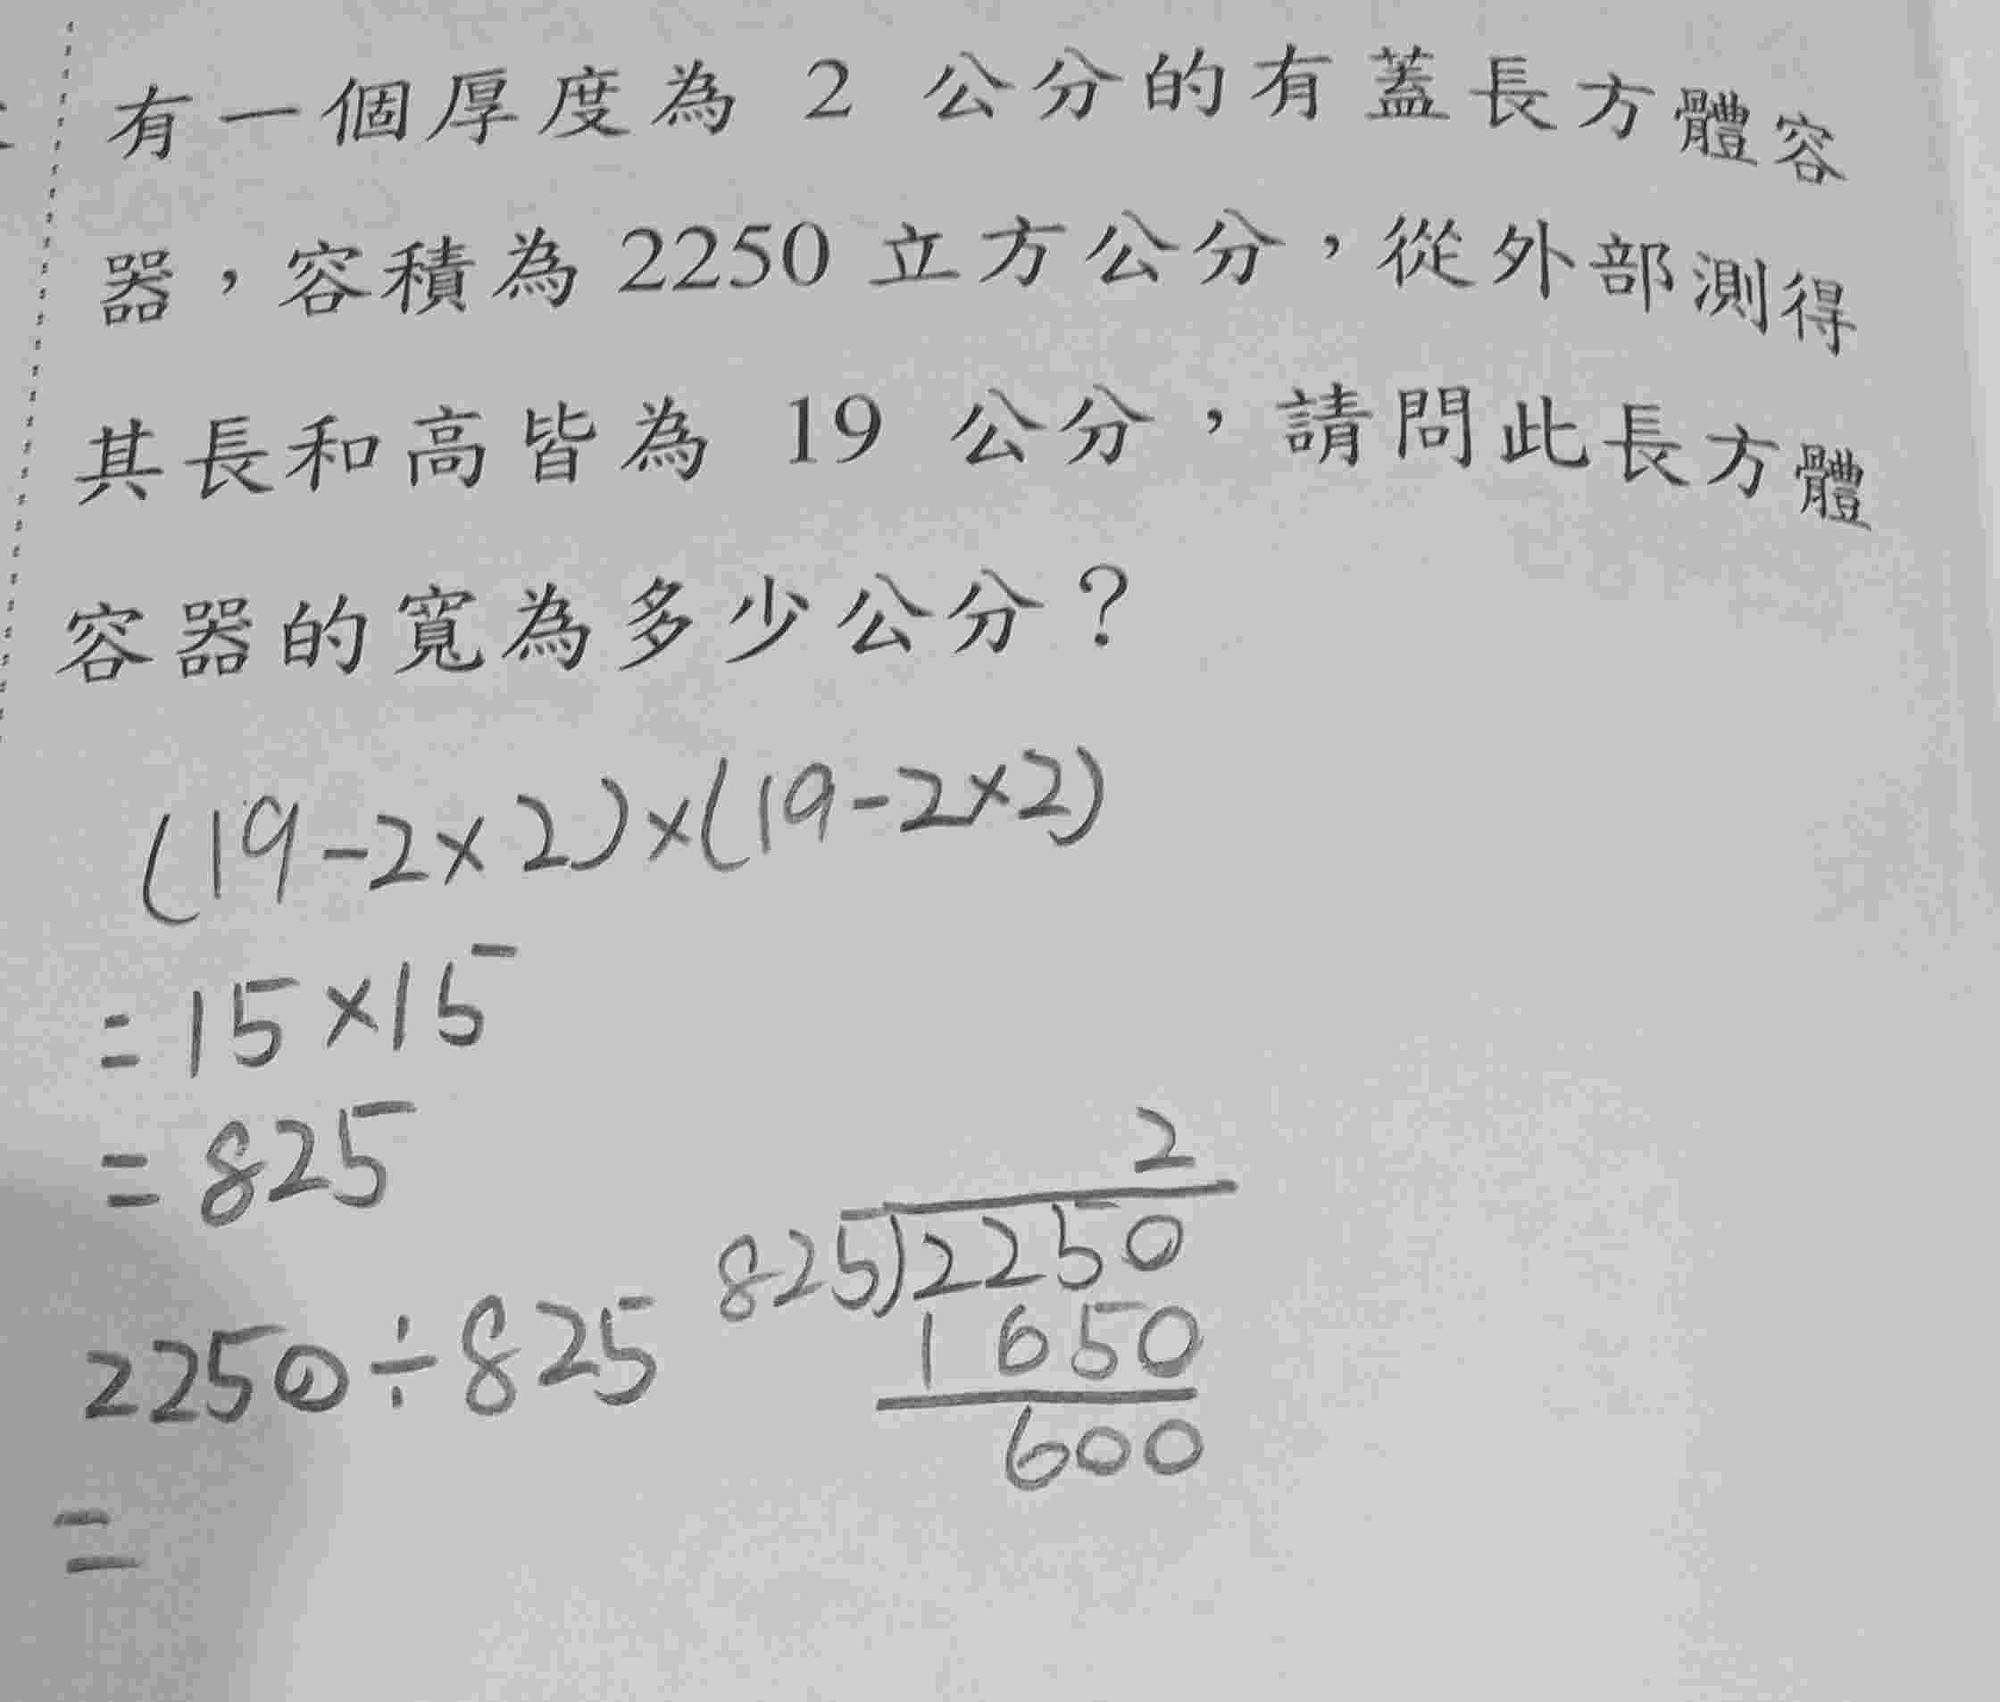 有一個厚度為 2 公分的有蓋長方體容
器，容積為 2250 立方公分，從外部測得
其長和高皆為 19 公分，請問此長方體
容器的寬為多少公分？
(19-2×2)×(19-2×2)
=15×15
=825
2250÷825
=
2
825)2250
1650
600